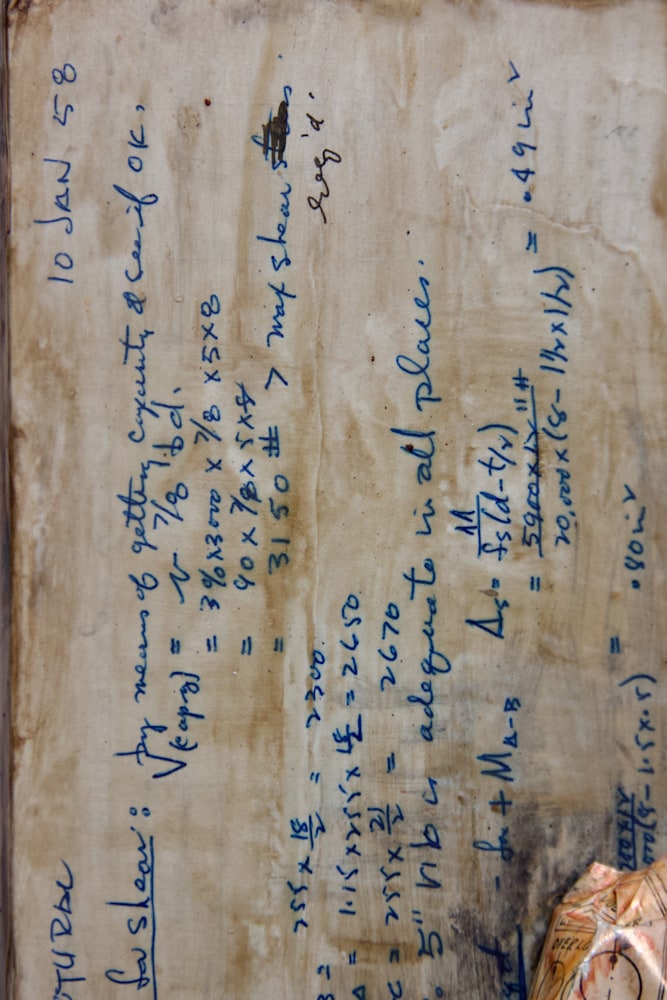 UTURAL 10 JAN 58
for shear: by means of getting capacity & see if OK.
V(capcy) = v 7/8 bd.
= 3%x3000 x 7/8 x 5 x 8
= 90 x 7/8 x 5 x 8
= 3150 # > max shear
req'd.
= 255 x 18/2 = 2300
= 1.15 x 255 x 18/2 = 2650
C = 255 x 21/2 = 2670
5" rib is adequate in all places.
- for + M A-B As = M/fs(d-t/2)
= 5900x12"#/20,000x(8-1 1/2x1/2) = .49 in²
= .40 in²
OVER